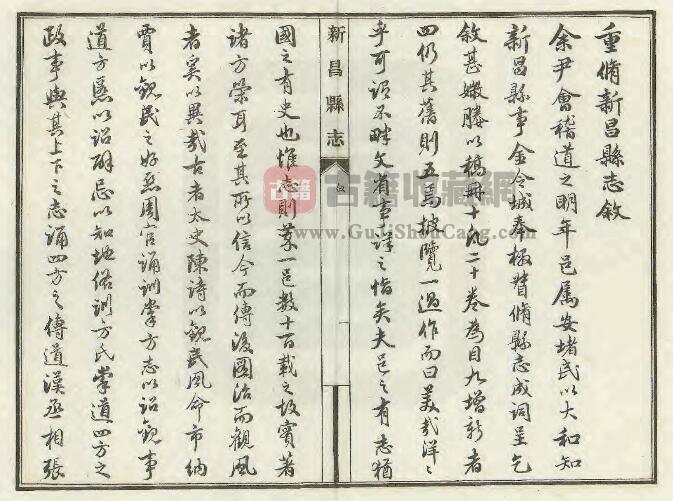 重脩新昌縣志敘
余尹會稽道之明年邑屬安堵民以大和知
新昌縣事金令城奉檄督脩縣志成詞呈乞
敘甚賸以稿冊十凡二十卷為目九增新者
四仍其舊則五焉披覽一過作而曰美哉洋々
乎可謂不畔文省事詳之恉矣夫邑之有志猶
新昌縣志
敘
一
國之有史也惟志則一邑數十百載之故實著
諸方策耳至其所以信今而傳後圖治而觀風
者奚以異哉古者太史陳詩以觀民風命市納
賈以觀民之好惡周官誦訓掌方志以詔觀事
道方慝以詔辟忌以知地俗訓方氏掌道四方之
政事與其上下之志誦四方之傳道漢丞相張
古籍
古籍收藏網
www.GuJiShouCang.com